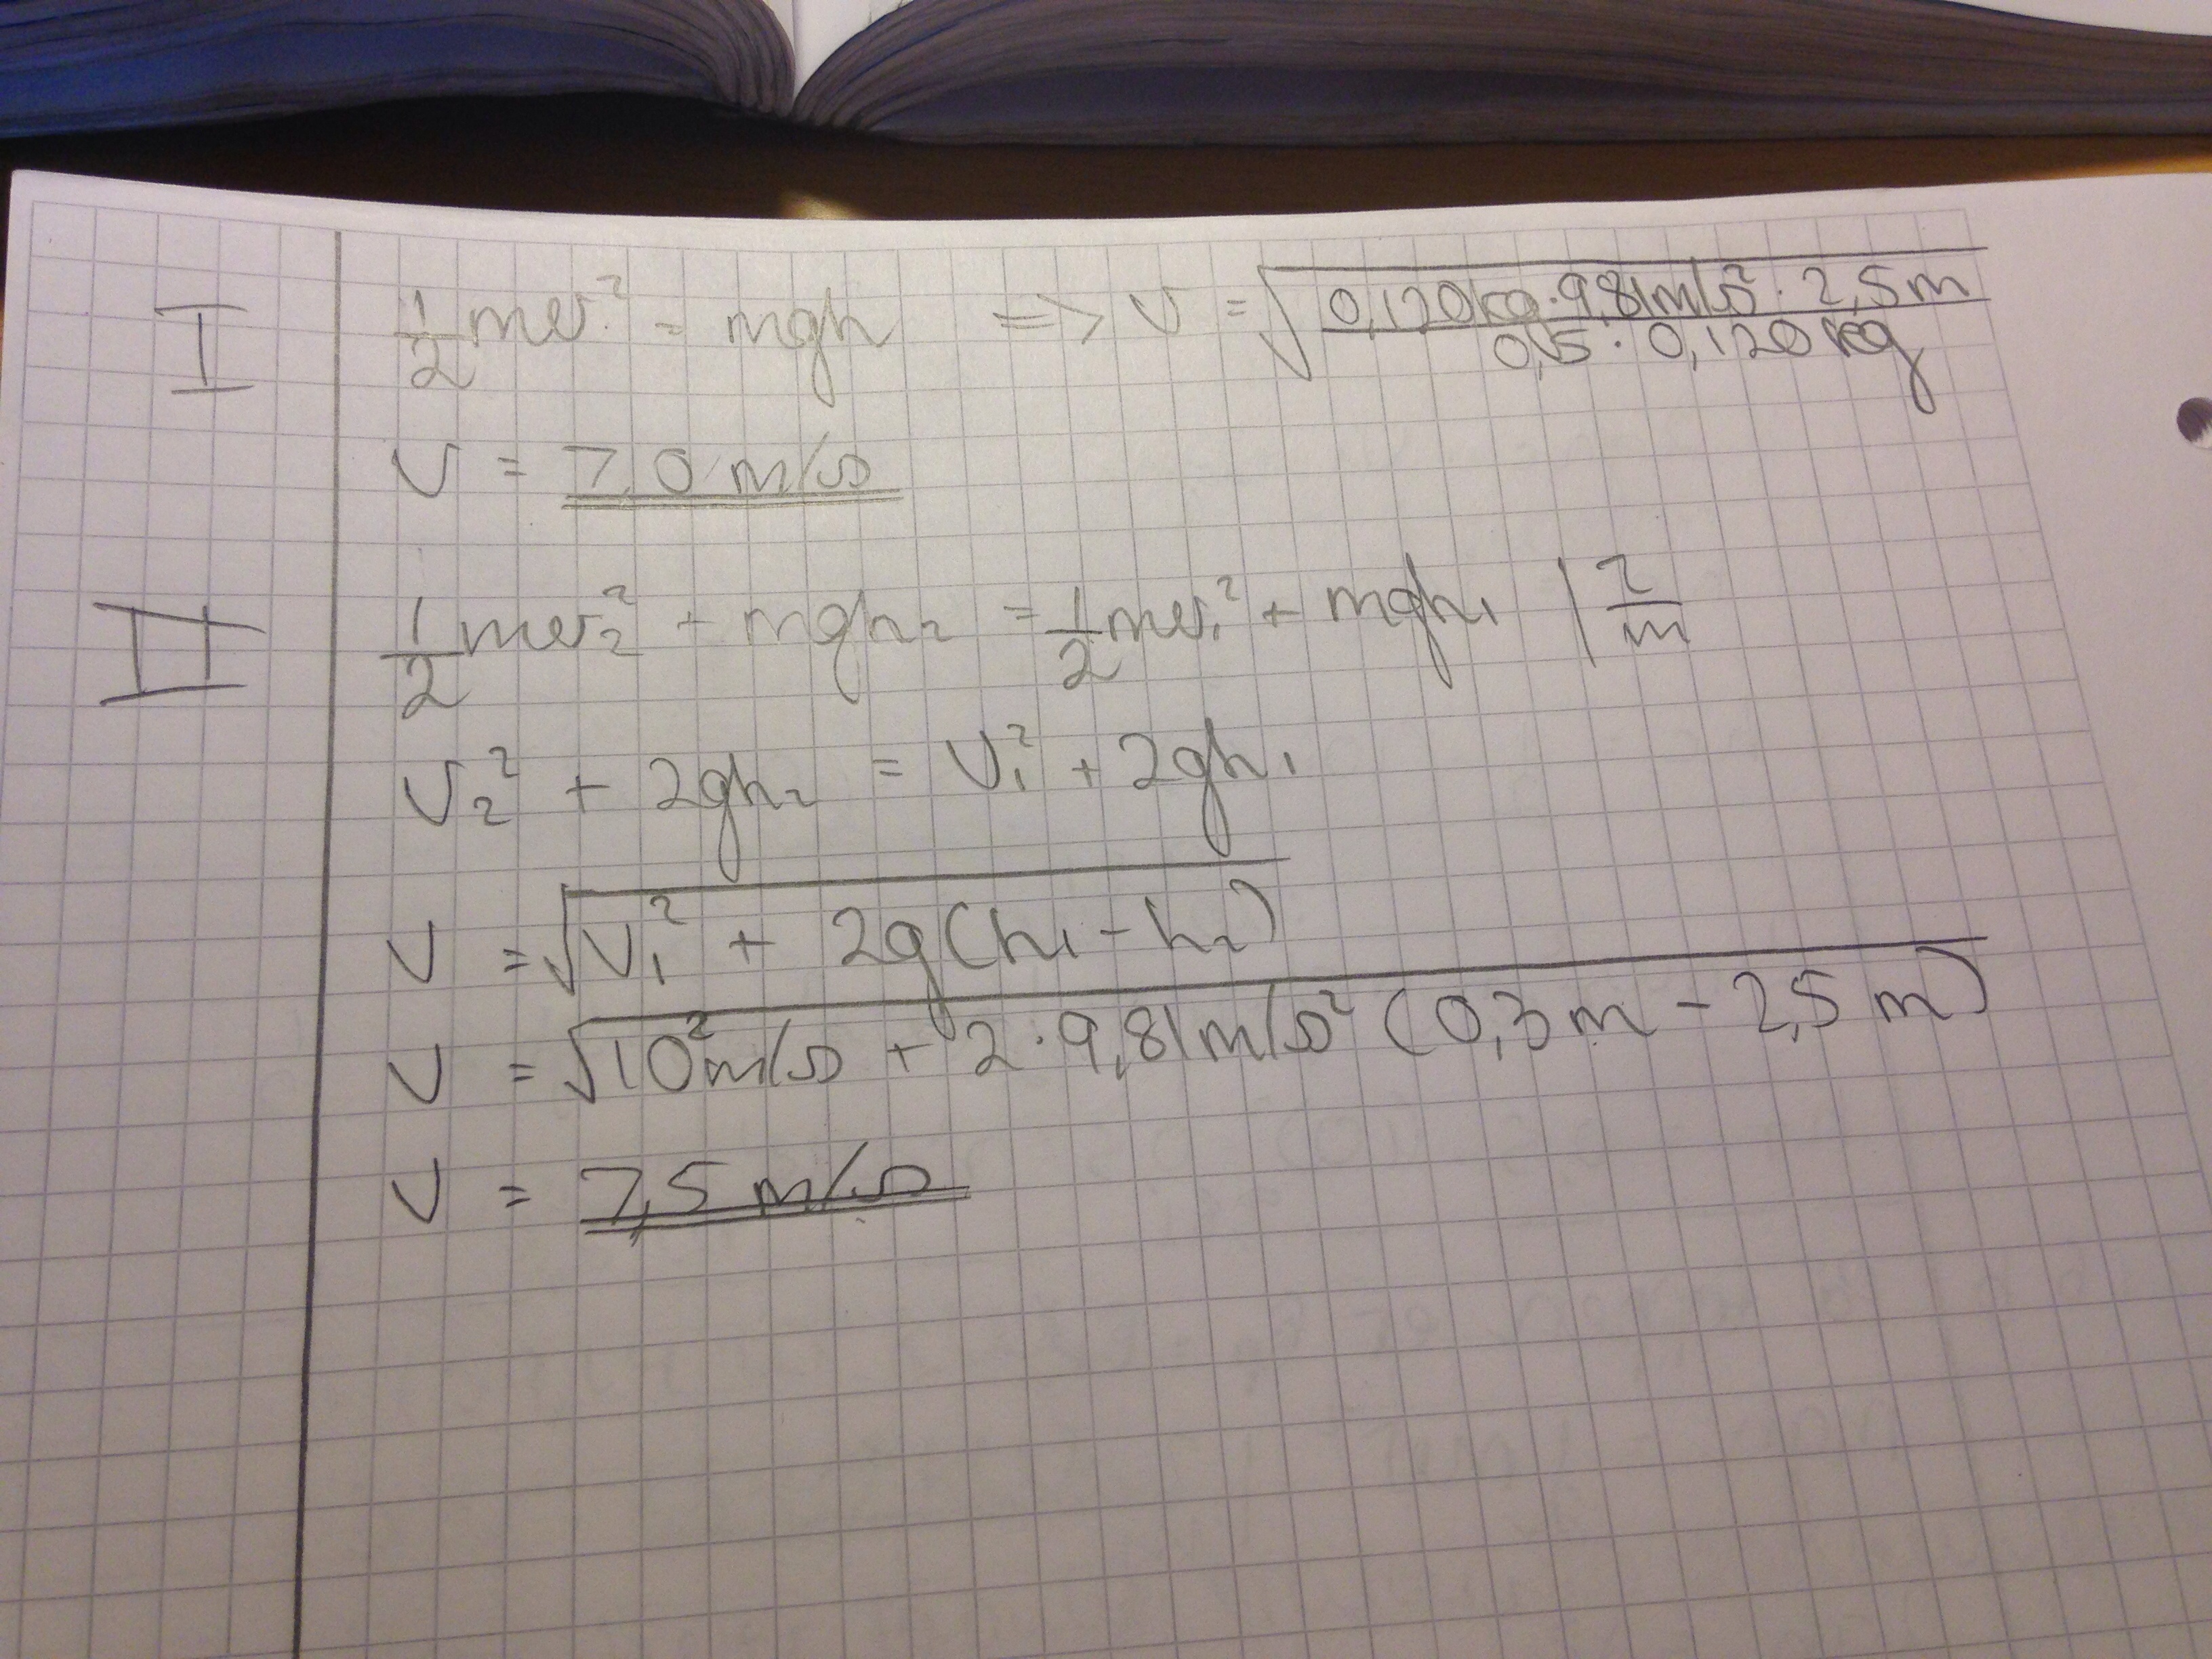 I ½mv² = mgh => v = √((0,120kg·9,81m/s²·2,5m)/(0,5·0,120kg))
v = 7,0 m/s
II ½mv₂² + mgh₂ = ½mv₁² + mgh₁ | 2/m
v₂² + 2gh₂ = v₁² + 2gh₁
v = √(v₁² + 2g(h₁-h₂))
v = √(10²m/s + 2·9,81m/s²(0,3m - 2,5m))
v = 7,5 m/s